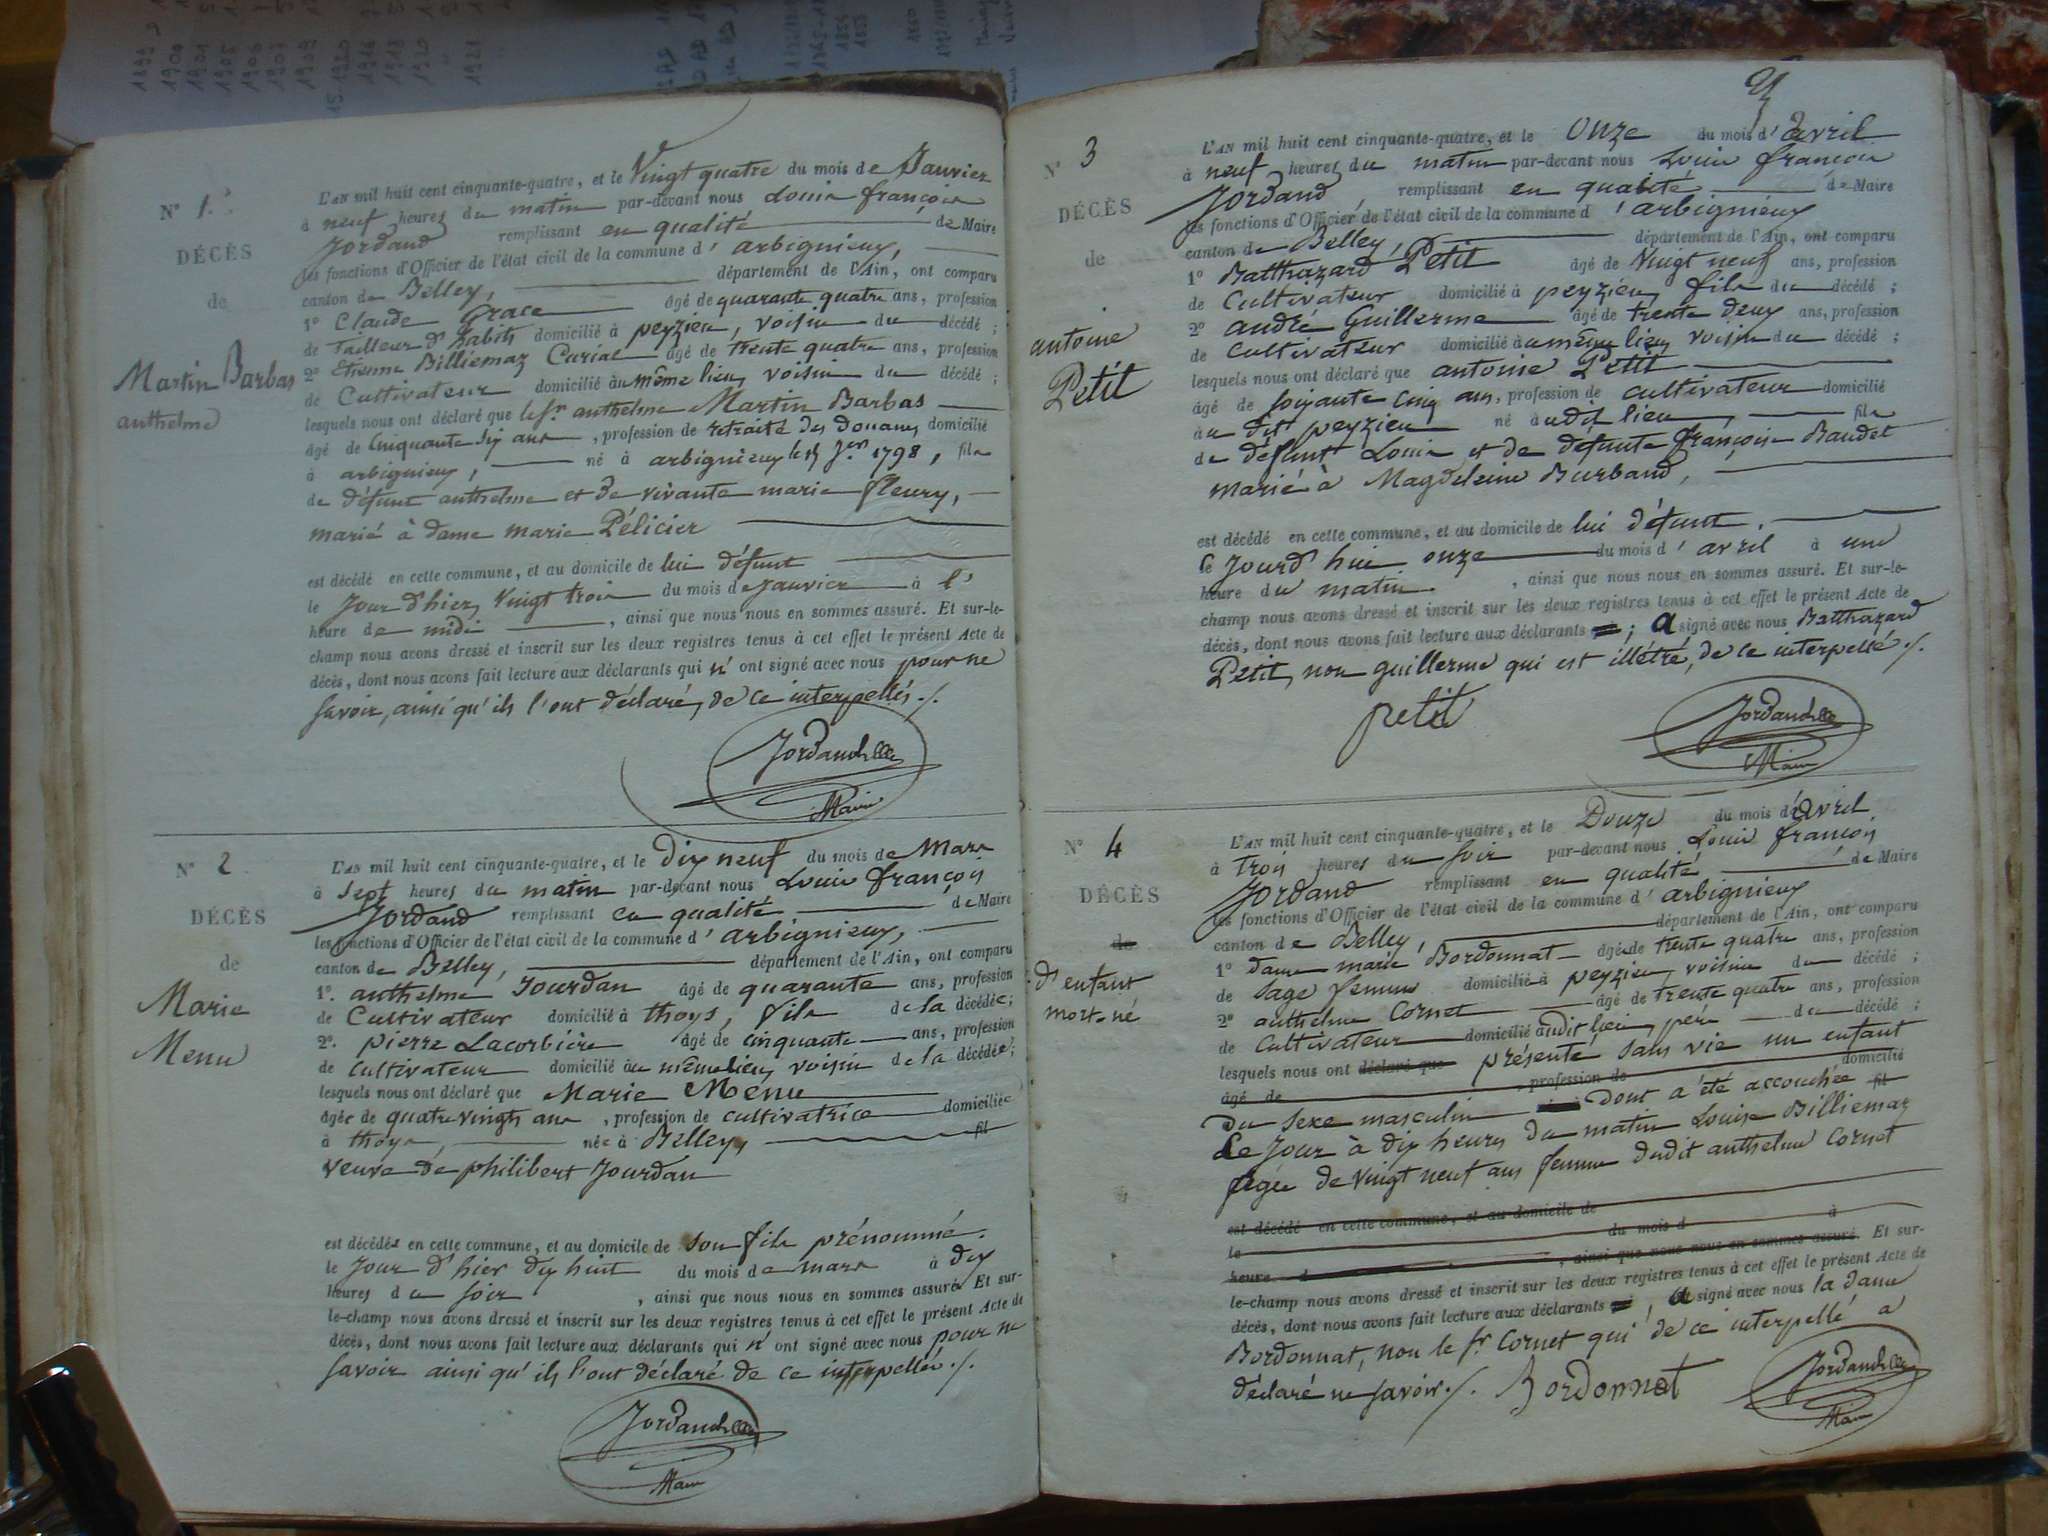 N° 1.
DÉCÈS
de
Martin Barbas
anthelme
L'AN mil huit cent cinquante-quatre, et le Vingt quatre du mois de Janvier
à neuf heures du matin par-devant nous Louis françois
Jordand remplissant en qualité de Maire
les fonctions d'Officier de l'état civil de la commune d' arbignieux,
canton de Belley, département de l'Ain, ont comparu
1° Claude Grace âgé de quarante quatre ans, profession
de Tailleur d'habits domicilié à peyzieu, voisin du décédé ;
2° Etienne Billiemaz Curial âgé de trente quatre ans, profession
de Cultivateur domicilié au même lieu, voisin du décédé ;
lesquels nous ont déclaré que le Sr anthelme Martin Barbas
âgé de Cinquante six ans, profession de retraité des Douanes, domicilié
à arbignieux, né à arbignieux le 15 Jer 1798, fils
de défunt anthelme et de vivante marie fleury,
marié à dame marie Pélicier
est décédé en cette commune, et au domicile de lui défunt
le Jour d'hier, vingt trois du mois de Janvier à l'
heure de midi, ainsi que nous nous en sommes assuré. Et sur-le-
champ nous avons dressé et inscrit sur les deux registres tenus à cet effet le présent Acte de
décès, dont nous avons fait lecture aux déclarants qui n'ont signé avec nous pour ne
savoir, ainsi qu'ils l'ont déclaré, de ce interpellés ./.
Jordand
Maire
N° 2
DÉCÈS
de
Marie
Menu
L'AN mil huit cent cinquante-quatre, et le Dix neuf du mois de Mars
à sept heures du matin par-devant nous Louis françois
Jordand remplissant en qualité de Maire
les fonctions d'Officier de l'état civil de la commune d' arbignieux,
canton de Belley, département de l'Ain, ont comparu
1°. anthelme Jourdan âgé de quarante ans, profession
de Cultivateur domicilié à thoys, fils de la décédée ;
2°. pierre Lacorbière âgé de cinquante ans, profession
de cultivateur domicilié au même lieu, voisin de la décédée ;
lesquels nous ont déclaré que Marie Menu
âgée de quatre vingts ans, profession de cultivatrice domiciliée
à thoys, née à Belley, fil
veuve de philibert Jourdan
est décédée en cette commune, et au domicile de son fils prénommé.
le Jour d'hier dix huit du mois de mars à dix
heures du soir, ainsi que nous nous en sommes assuré. Et sur-
le-champ nous avons dressé et inscrit sur les deux registres tenus à cet effet le présent Acte de
décès, dont nous avons fait lecture aux déclarants qui n'ont signé avec nous pour ne
savoir ainsi qu'ils l'ont déclaré de ce interpellés ./.
Jordand
Maire
N° 3
DÉCÈS
de
antoine
Petit
L'AN mil huit cent cinquante-quatre, et le Onze du mois d' avril
à neuf heures du matin par-devant nous Louis françois
Jordand, remplissant en qualité de Maire
les fonctions d'Officier de l'état civil de la commune d' arbignieux
canton de Belley, département de l'Ain, ont comparu
1° Balthazard Petit âgé de Vingt neuf ans, profession
de Cultivateur domicilié à peyzieu, fils du décédé ;
2° andré Guillerme âgé de trente deux ans, profession
de cultivateur domicilié au même lieu, voisin du décédé ;
lesquels nous ont déclaré que antoine Petit
âgé de soixante cinq ans, profession de cultivateur domicilié
au dit peyzieu né audit lieu, fils
de défunt Louis et de défunte françoise Baudet
marié à Magdeleine Burband,
est décédé en cette commune, et au domicile de lui défunt,
le Jourd'hui onze du mois d' avril à une
heure du matin, ainsi que nous nous en sommes assuré. Et sur-le-
champ nous avons dressé et inscrit sur les deux registres tenus à cet effet le présent Acte de
décès, dont nous avons fait lecture aux déclarants ; a signé avec nous Balthazard
Petit, non guillerme qui est illétré, de ce interpellé ./.
petit
Jordand
Maire
N° 4
DÉCÈS
de
d'enfant
mort-né
L'AN mil huit cent cinquante-quatre, et le Douze du mois d'avril
à trois heures du soir par-devant nous Louis françois
Jordand remplissant en qualité de Maire
les fonctions d'Officier de l'état civil de la commune d' arbignieux
canton de Belley, département de l'Ain, ont comparu
1° dame marie Bordonnat âgé de trente quatre ans, profession
de sage femme domicilié à peyzieu, voisine du décédé ;
2° anthelme Cornet âgé de trente quatre ans, profession
de Cultivateur domicilié audit lieu, père du décédé ;
lesquels nous ont déclaré que présenté sans vie un enfant
âgé de, profession de domicilié
Du sexe masculin dont a été accouchée fil
Ce Jour à dix heures du matin Louise Billiemaz
âgée de vingt neuf ans femme dudit anthelme Cornet
est décédé en cette commune, et au domicile de
le du mois d à
heure d, ainsi que nous nous en sommes assuré. Et sur-
le-champ nous avons dressé et inscrit sur les deux registres tenus à cet effet le présent Acte de
décès, dont nous avons fait lecture aux déclarants ; a signé avec nous la dame
Bordonnat, non le Sr Cornet qui de ce interpellé a
déclaré ne savoir ./. Bordonnat
Jordand
Maire